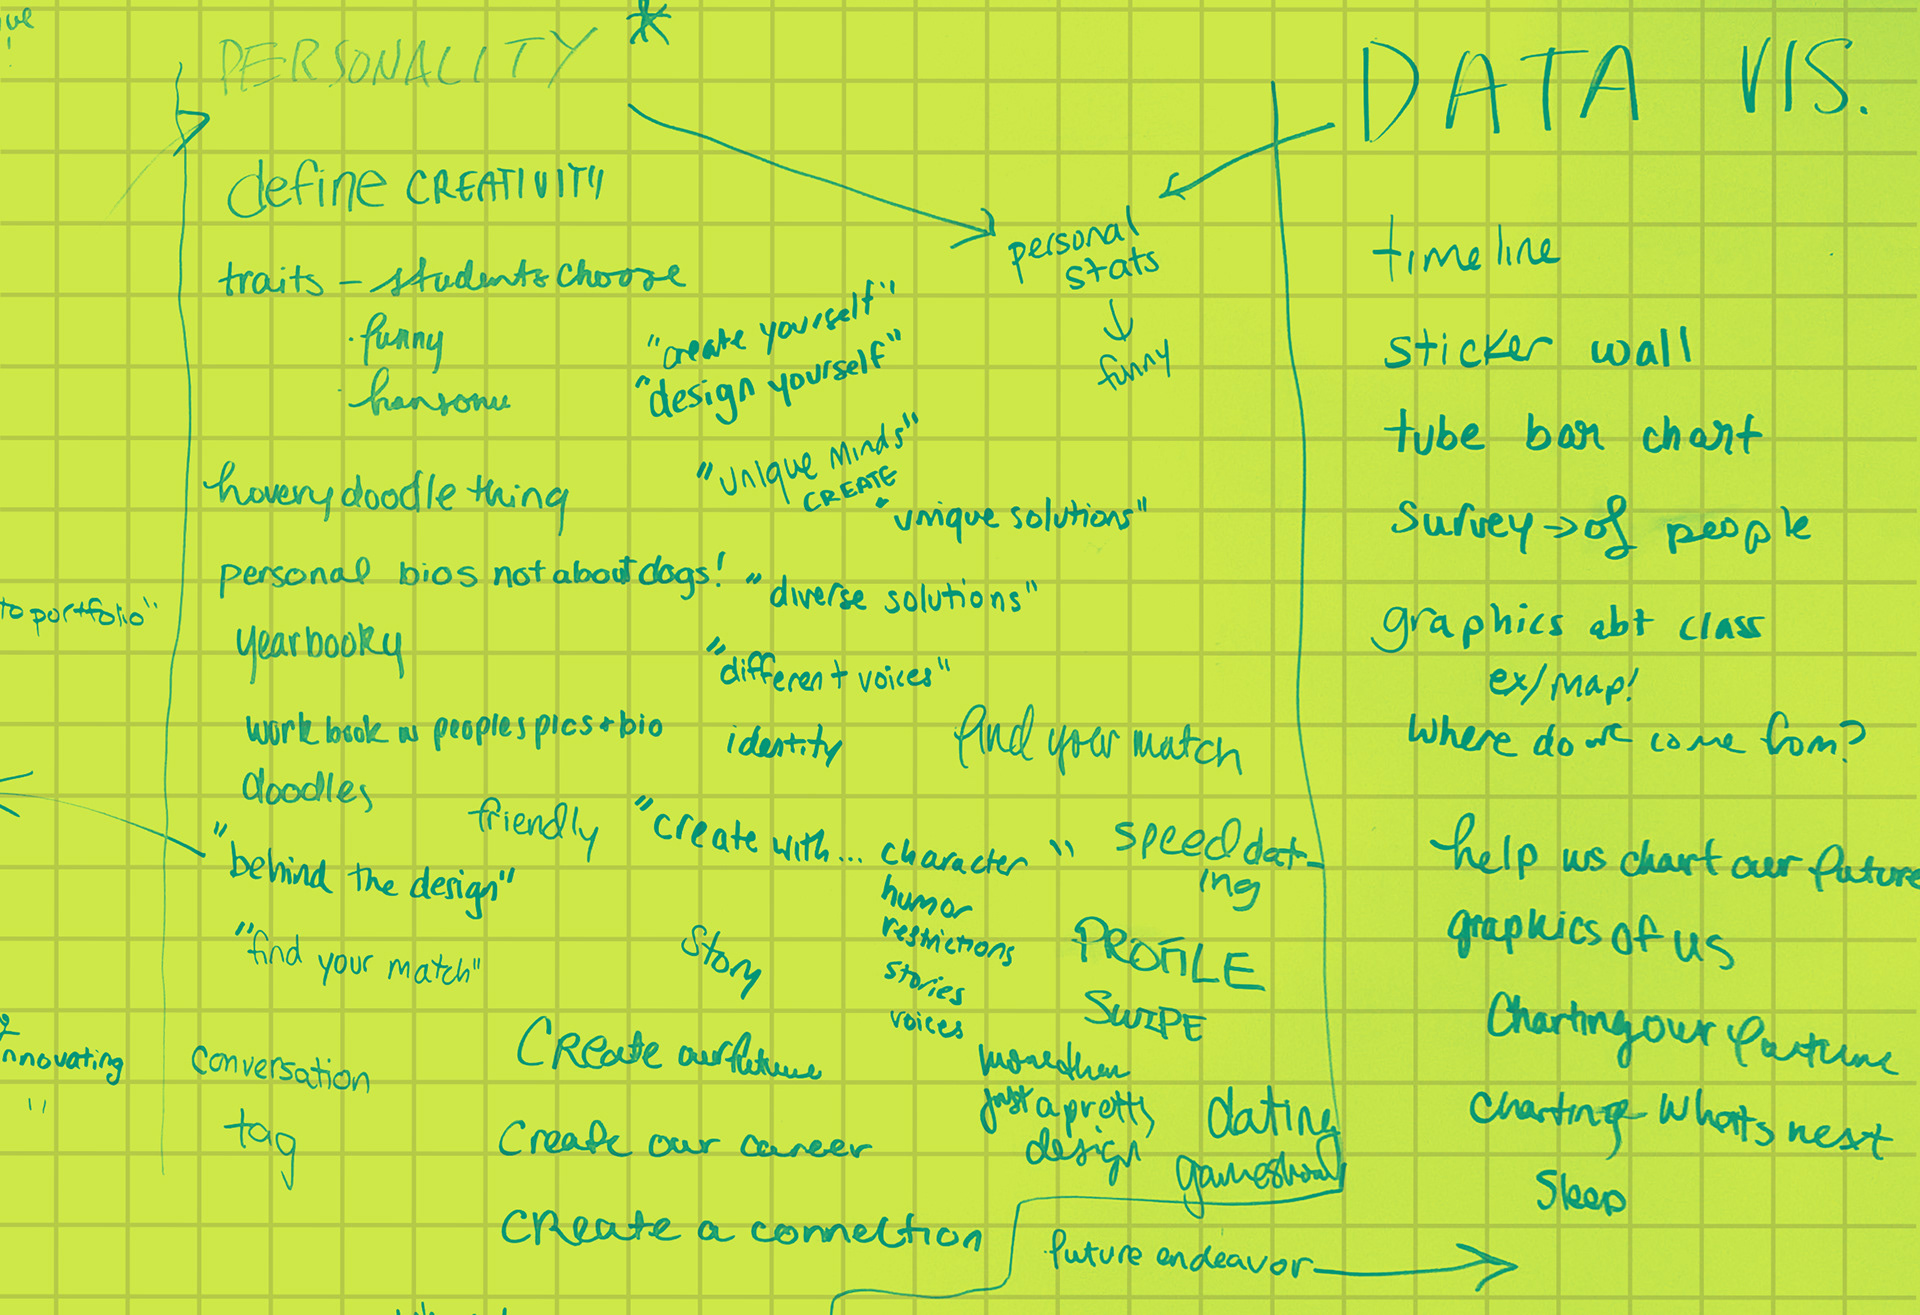 PERSONALITY
define CREATIVITY
traits - students choose
· funny
·
hovery doodle thing
personal bios not about dogs!
yearbooky
work book w peoples pics + bio
doodles
"behind the design"
"find your match"
conversation
tag
to portfolio"
innovating
"
personal
stats
funny
"create yourself"
"design yourself"
"unique minds"
CREATE
"unique solutions"
"diverse solutions"
"different voices"
identity
find your match
friendly
"create with... character "
humor
restrictions
stories
voices
story
speed dat-
ing
PROFILE
SWIPE
more than
just a pretty
design
dating
gameshow
Create our future
Create our career
Create a connection
future endeavor
DATA VIS.
timeline
sticker wall
tube bar chart
survey → of people
graphics abt class
ex/map!
where do we come from?
help us chart our future
graphics of us
Charting our future
charting whats next
sleep